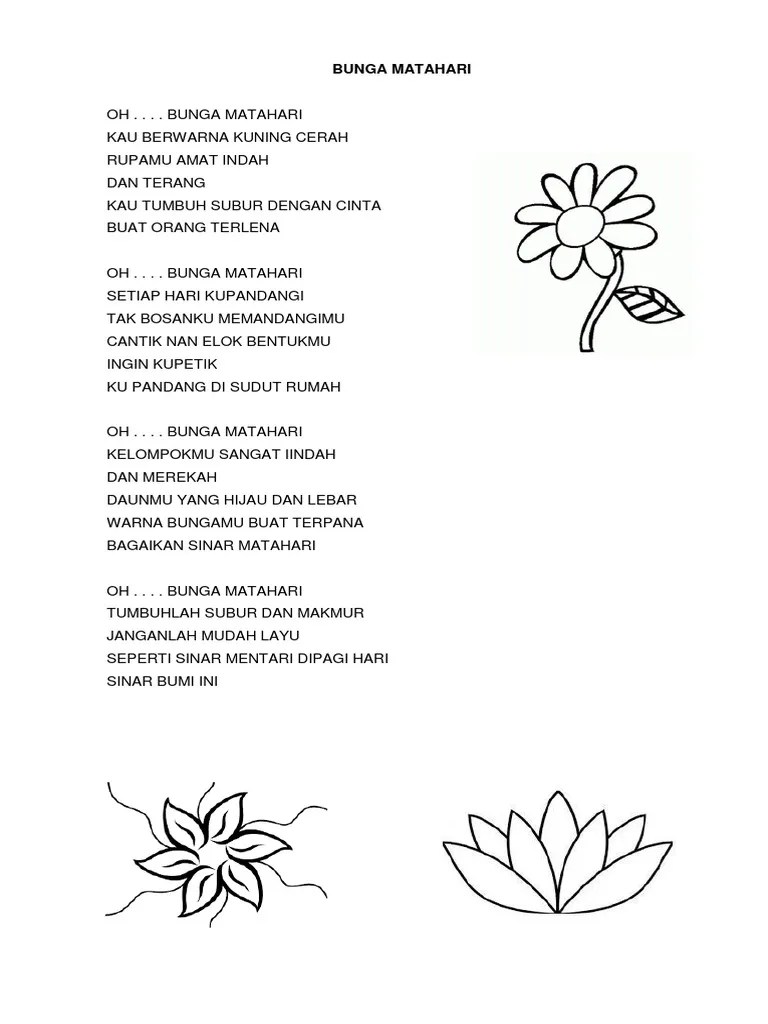 BUNGA MATAHARI
OH . . . . BUNGA MATAHARI
KAU BERWARNA KUNING CERAH
RUPAMU AMAT INDAH
DAN TERANG
KAU TUMBUH SUBUR DENGAN CINTA
BUAT ORANG TERLENA
OH . . . . BUNGA MATAHARI
SETIAP HARI KUPANDANGI
TAK BOSANKU MEMANDANGIMU
CANTIK NAN ELOK BENTUKMU
INGIN KUPETIK
KU PANDANG DI SUDUT RUMAH
OH . . . . BUNGA MATAHARI
KELOMPOKMU SANGAT IINDAH
DAN MEREKAH
DAUNMU YANG HIJAU DAN LEBAR
WARNA BUNGAMU BUAT TERPANA
BAGAIKAN SINAR MATAHARI
OH . . . . BUNGA MATAHARI
TUMBUHLAH SUBUR DAN MAKMUR
JANGANLAH MUDAH LAYU
SEPERTI SINAR MENTARI DIPAGI HARI
SINAR BUMI INI